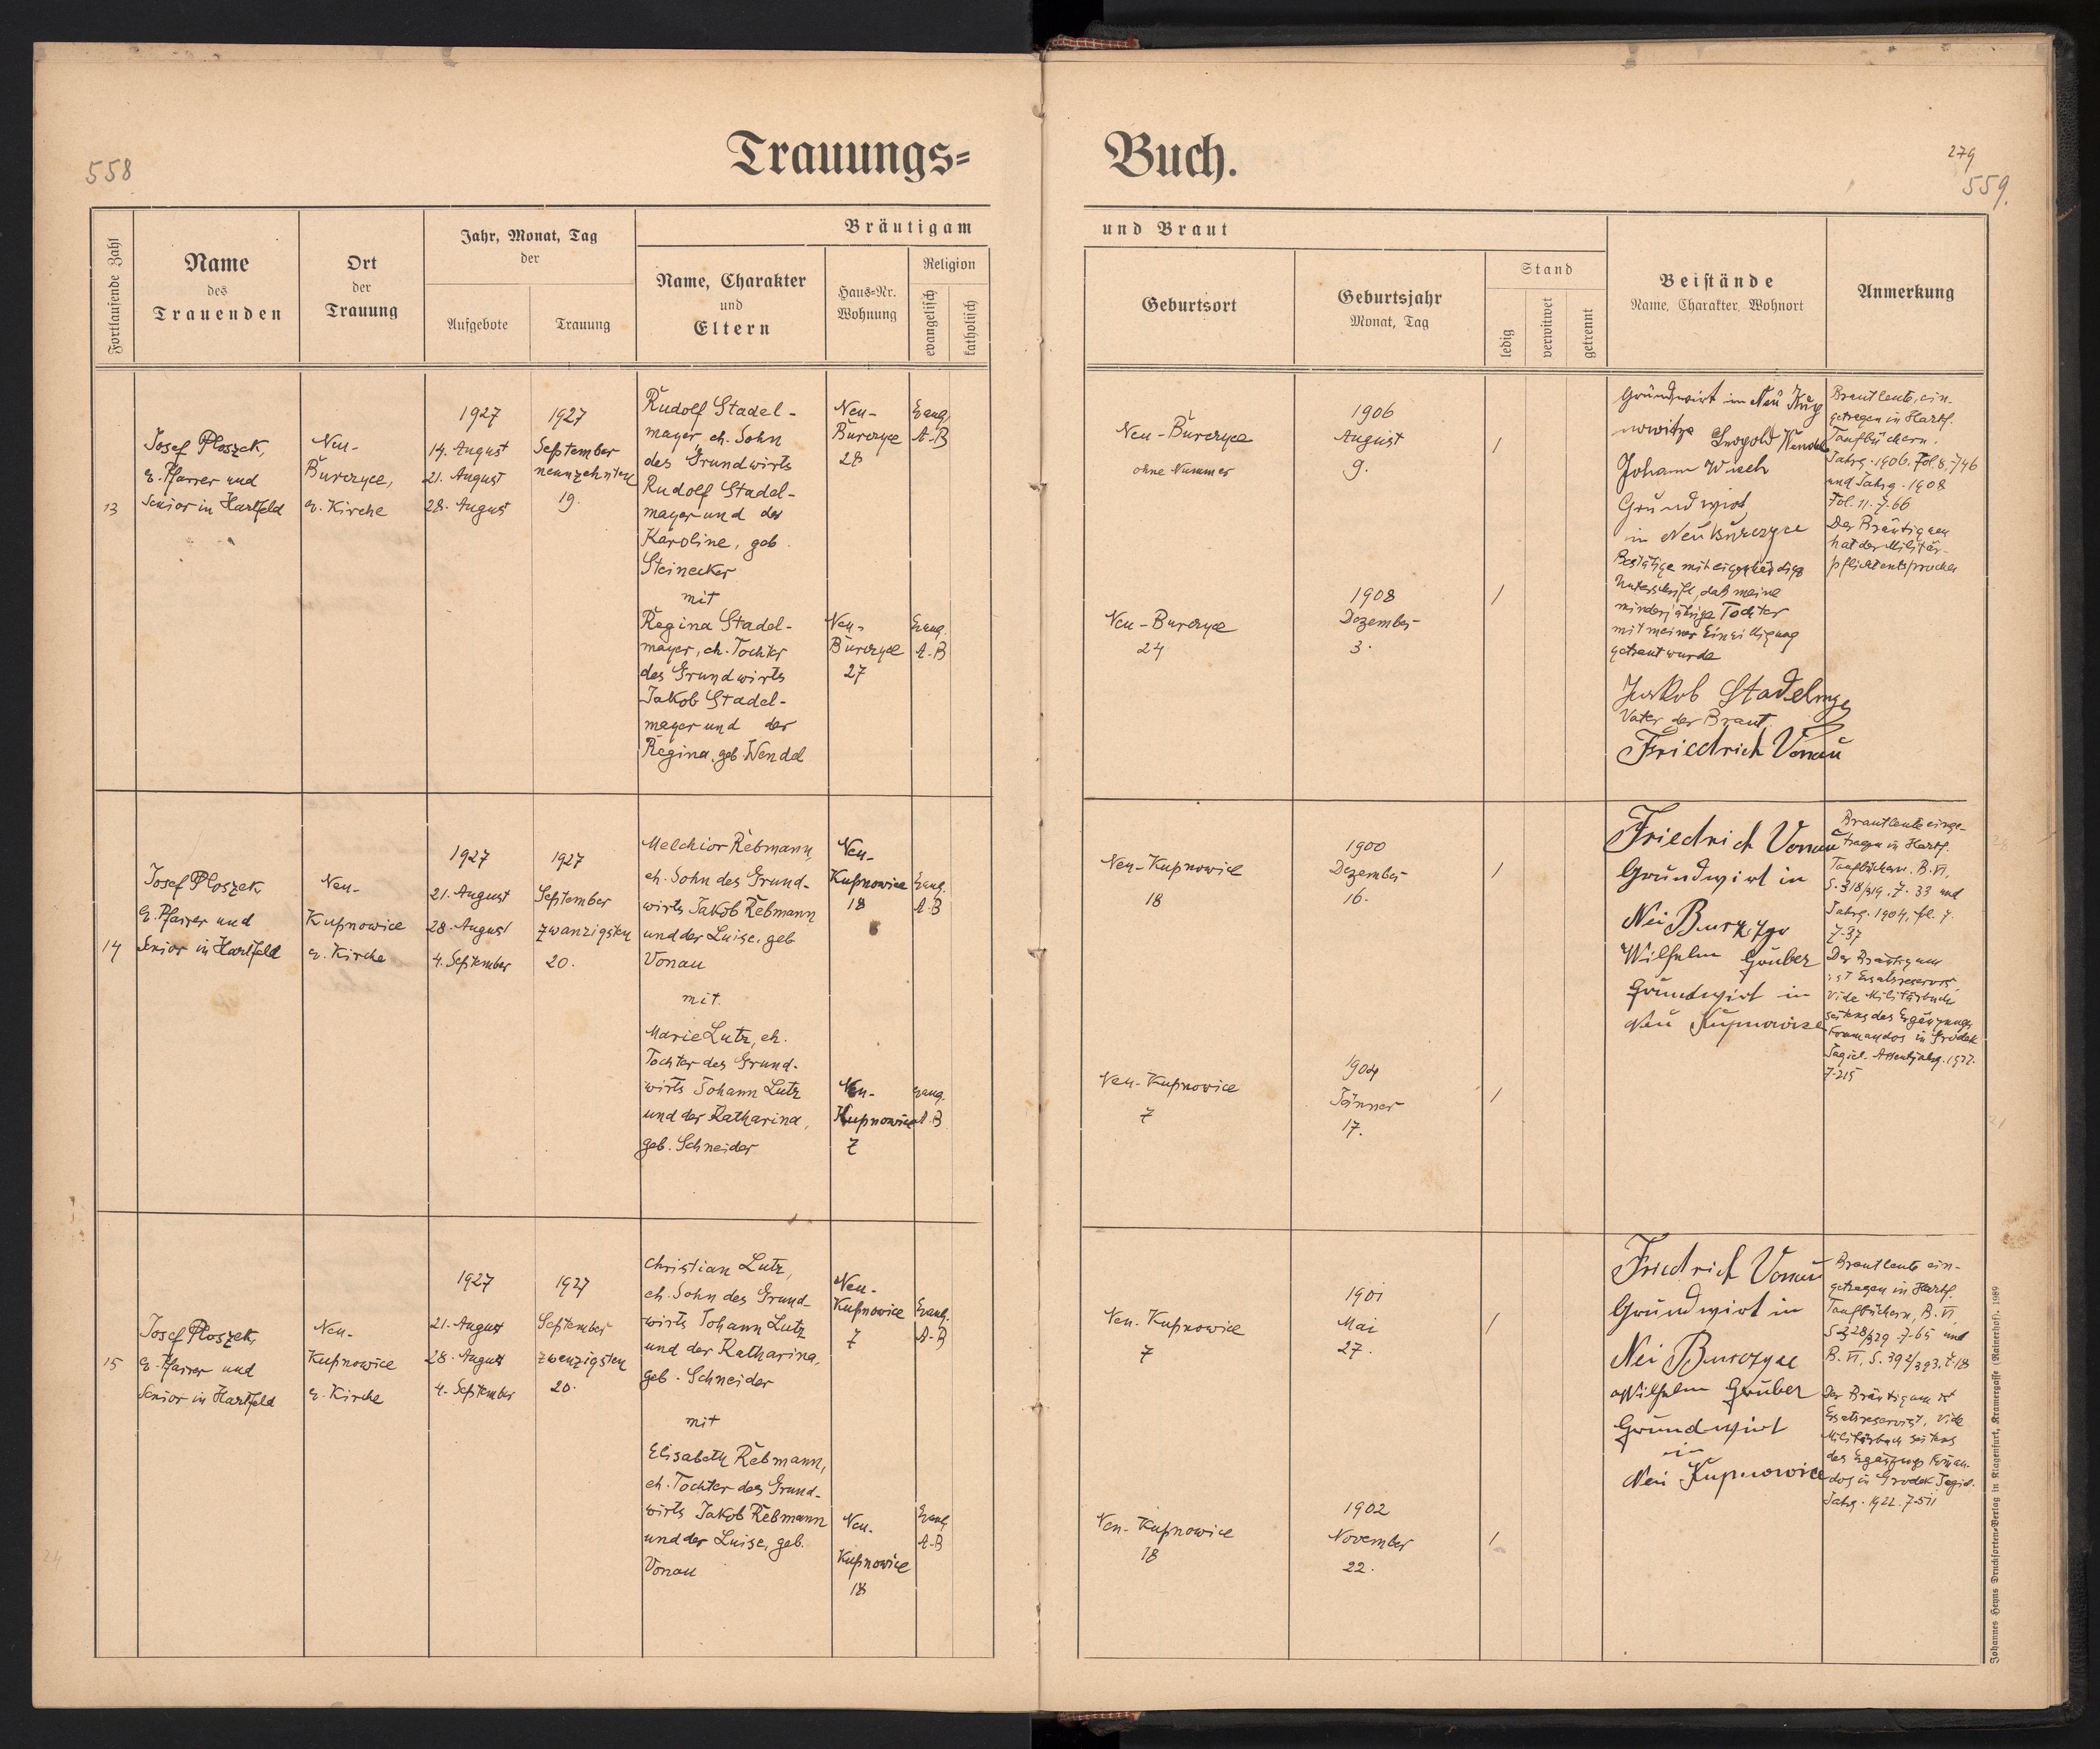 558
Trauungs=
Buch.
279
559.
Fortlaufende Zahl
Name
des
Trauenden
Ort
der
Trauung
Jahr, Monat, Tag
der
Aufgebote
Trauung
Bräutigam
Name, Charakter
und
Eltern
Haus=Nr.
Wohnung
Religion
evangelisch
katholisch
und Braut
Geburtsort
Geburtsjahr
Monat, Tag
Stand
ledig
verwitwet
getrennt
Beistände
Name, Charakter, Wohnort
Anmerkung
13
Josef Ploszek,
ev. Pfarrer und
Senior in Hartfeld
Neu-
Burczyce,
ev. Kirche
1927
14. August
21. August
28. August
1927
September
neunzehnten
19.
Rudolf Stadel-
mayer, eh. Sohn
des Grundwirts
Rudolf Stadel-
mayer und der
Karoline, geb.
Steinecker
mit
Regina Stadel-
mayer, eh. Tochter
des Grundwirts
Jakob Stadel-
mayer und der
Regina, geb. Wendel
Neu-
Burczyce
28
Evang.
A-B
Neu-
Burczyce
27
Evang.
A-B
Neu-Burczyce
ohne Nummer
1906
August
9.
/
Neu-Burczyce
24
1908
Dezember
3.
/
Grundwirt in Neu
Leopold Wendel
Johann
Grundwirt
in Neu Burczyce
Bestätige mit eigenhändiger
Unterschrift, daß meine
minderjährige Tochter
mit meiner Einwilligung
getraut wurde
Jakob Stadelmayer
Vater der Braut
Friedrich Vonau
Brautleute ein-
getragen in Hartf.
Taufbüchern,
Jahrg. 1906. Fol. 8, Z 46
und Jahrg. 1908
Fol. 11. Z. 66
Der Bräutigam
hat der Militär-
pflicht entsprochen
14
Josef Ploszek,
ev. Pfarrer und
Senior in Hartfeld
Neu-
Kupnowice
ev. Kirche
1927
21. August
28. August
4. September
1927
September
zwanzigsten
20.
Melchior Rebmann,
eh. Sohn des Grund-
wirts Jakob Rebmann
und der Luise, geb
Vonau
mit
Marie Lutz, eh.
Tochter des Grund-
wirts Johann Lutz
und der Katharina,
geb. Schneider
Neu-
Kupnowice
18
Evang.
A.B
Neu-
Kupnowice
7
Evang.
A.B
Neu-Kupnowice
18
1900
Dezember
16.
/
Neu-Kupnowice
7
1904
Jänner
17.
/
Friedrich Vonau
Grundwirt in
Nei
Wilhelm Gruber
Grundwirt in
Neu Kupnowice
Brautleute einge-
tragen in Hartf.
Taufbüchern. B. VI,
S. 318/319. Z. 33 und
Jahrg. 1904, fol. 7.
Z-37
Der Bräutigam
ist Ersatzreservist,
vide Militärbuch
seitens des Ergänzungs
kommandos in Grodek
Jagiel.
Z-215
15
Josef Ploszek,
ev. Pfarrer und
Senior in Hartfeld
Neu-
Kupnowice
ev. Kirche
1927
21. August
28. August
4. September
1927
September
zwanzigsten
20.
Christian Lutz,
eh. Sohn des Grund-
wirts Johann Lutz
und der Katharina,
geb. Schneider
mit
Elisabeth Rebmann,
eh. Tochter des Grund-
wirts Jakob Rebmann
und der Luise, geb.
Vonau
Neu-
Kupnowice
7
Evang.
A-B
Neu-
Kupnowice
18
Evang
A-B
Neu-Kupnowice
7
1901
Mai
27.
/
Neu-Kupnowice
18
1902
November
22.
/
Friedrich Vonau
Grundwirt in
Nei Burczyce
Wilhelm Gruber
Grundwirt
in
Nei Kupnowice
Brautleute ein-
getragen in Hartf.
Taufbüchern, B. VI,
S-328/329. Z-65 und
B. VI, S. 392/393. Z-18
Der Bräutigam ist
Ersatzreservist, vide
Militärbuch seitens
des Ergänzungs
dos in Grodek Jagiel.
Jahrg. 1922. Z-511
Johannes Heyns Druchsorten=Verlag in Klagenfurt, Kramergasse (Rainerhof). 1989